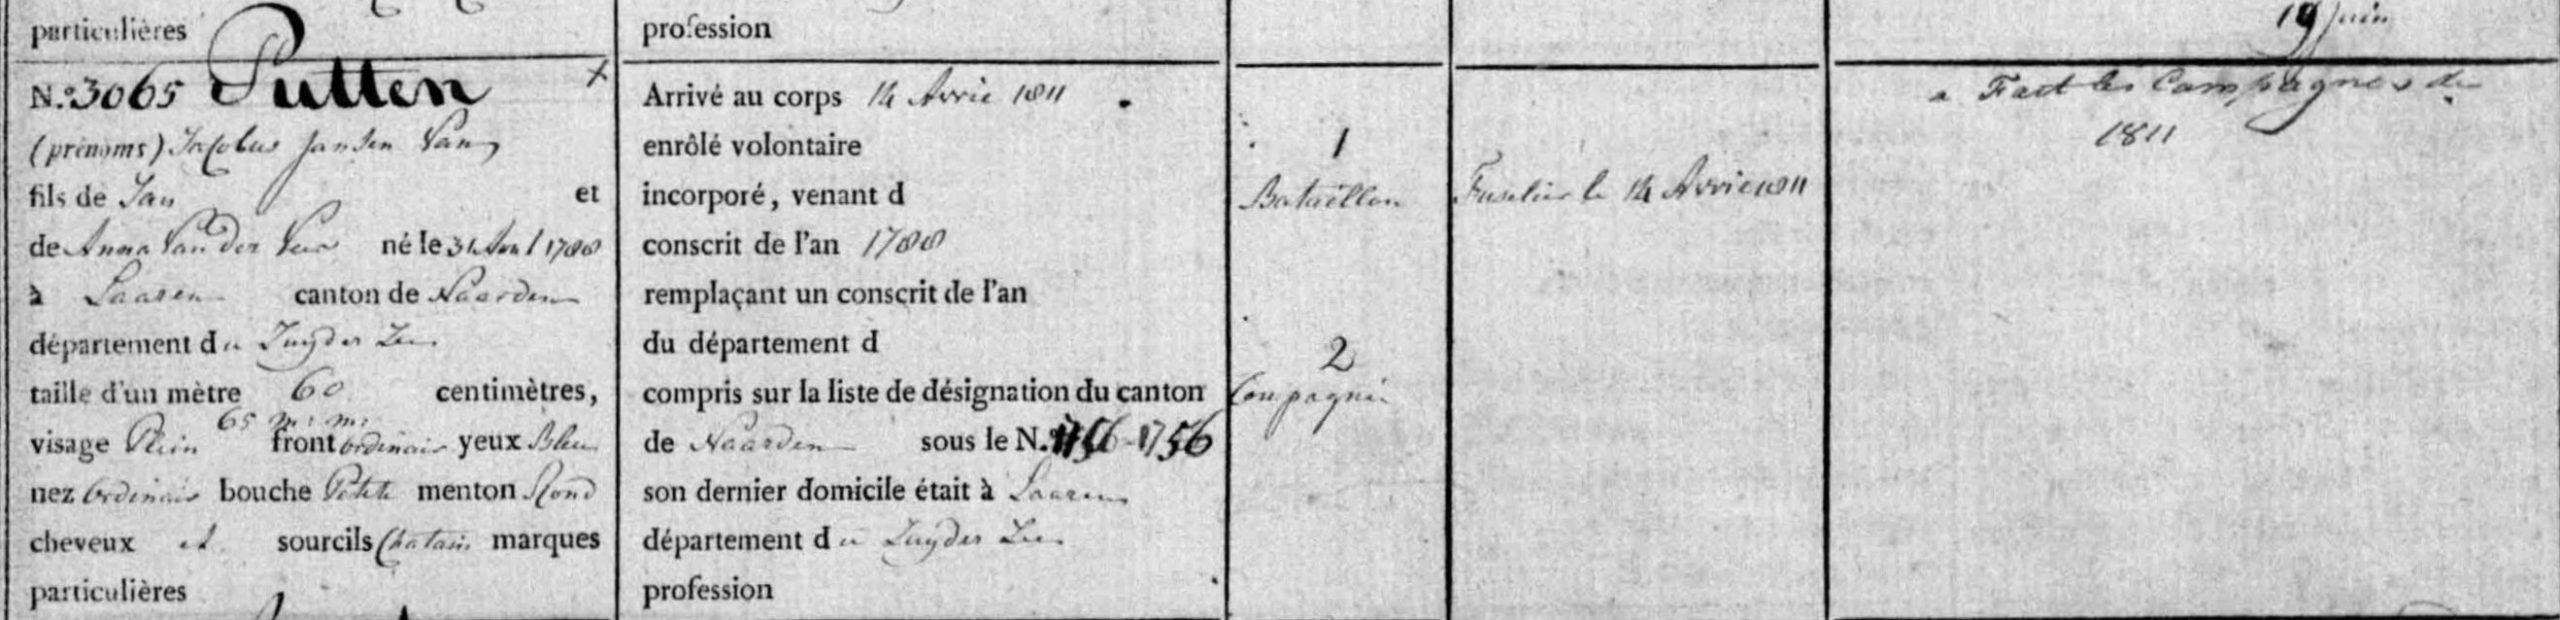 particulières
N.º 3065 Putten
(prénoms) Jacobus Jansen Van
fils de Jan et
de Anna Van Der Veer né le 31 Avril 1788
à Laaren canton de Naarden
département du Zuyder Zee
taille d'un mètre 60 centimètres,
65 m: m:
visage Plein front ordinair yeux Bleu
nez Ordinair bouche Petite menton Rond
cheveux et sourcils Chatain marques
particulières
profession
Arrivé au corps 14 Avril 1811
enrôlé volontaire
incorporé, venant d
conscrit de l'an 1788
remplaçant un conscrit de l'an
du département d
compris sur la liste de désignation du canton
de Naarden sous le N.º 1756
son dernier domicile était à Laaren
département du Zuyder Zee
profession
1
Bataillon
2
Compagnie
Fuselier le 14 Avril 1811
19 Juin
a Fait les Campagnes de
1811